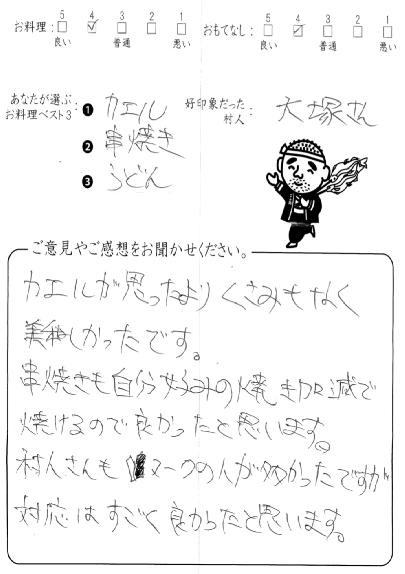 お料理: 5 4 3 2 1 おもてなし: 5 4 3 2 1
良い 普通 悪い 良い 普通 悪い
あなたが選ぶ
お料理ベスト3: ❶ カエル
❷ 串焼き
❸ うどん
好印象だった
村人: 大塚さん
ご意見やご感想をお聞かせください。
カエルが思ったよりくさみもなく
美味しかったです。
串焼きも自分好みの焼き加減で
焼けるので良かったと思います。
村人さんもヌークの人が多かったですが
対応はすごく良かったと思います。